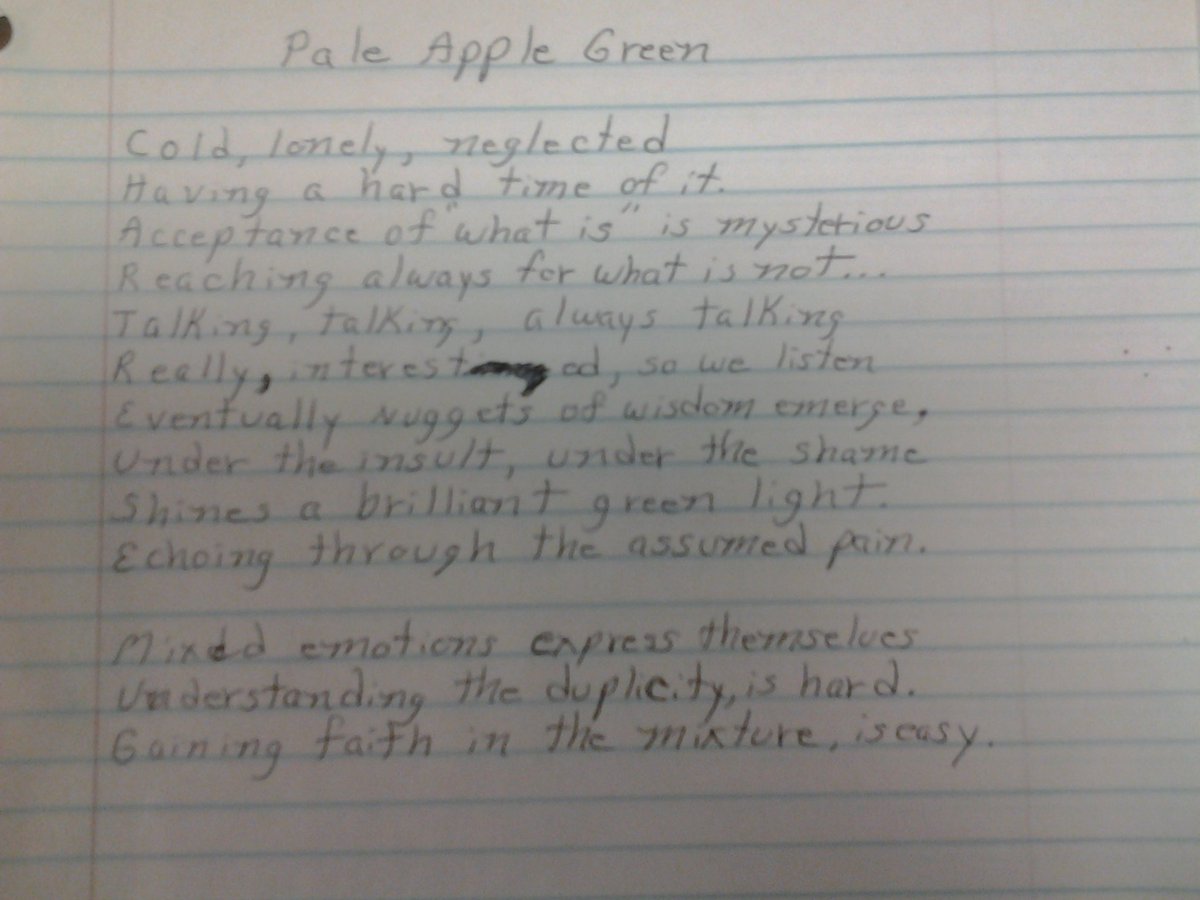 Pale Apple Green
Cold, lonely, neglected
Having a hard time of it.
Acceptance of "what is" is mysterious
Reaching always for what is not...
Talking, talking, always talking
Really, interested, so we listen
Eventually Nuggets of wisdom emerge,
Under the insult, under the shame
Shines a brilliant green light.
Echoing through the assumed pain.
Mixed emotions express themselves
Understanding the duplicity, is hard.
Gaining faith in the mixture, is easy.